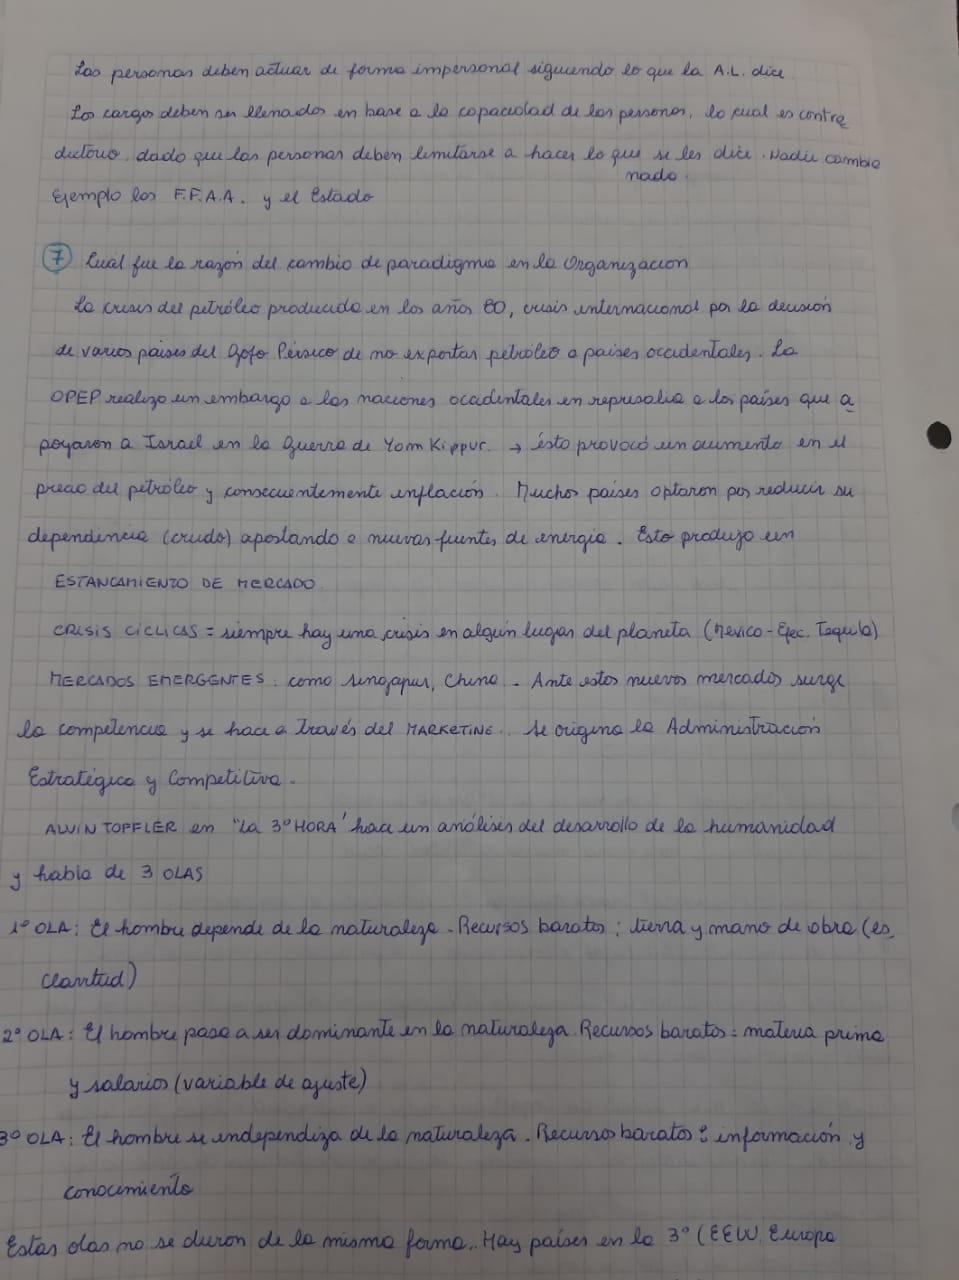 Las personas deben actuar de forma impersonal siguiendo lo que la A.L. dice
Los cargos deben ser llenados en base a la capacidad de las personas, lo cual es contra
dictorio, dado que las personas deben limitarse a hacer lo que se les dice. Nadie cambia
nada.
Ejemplo las F.F.A.A. y el Estado
7 Cuál fue la razón del cambio de paradigma en la Organización
La crisis del petróleo producida en los años 80, crisis internacional por la decisión
de varios países del Golfo Pérsico de no exportar petróleo a países occidentales. La
OPEP realizo un embargo a las naciones occidentales en represalia a los países que a
poyaron a Israel en la Guerra de Yom Kippur. → ésto provocó un aumento en el
precio del petróleo y consecuentemente inflación. Muchos países optaron por reducir su
dependencia (crudo) apostando a nuevas fuentes de energía. Esto produjo un
ESTANCAMIENTO DE MERCADO
CRISIS CÍCLICAS = siempre hay una crisis en algún lugar del planeta (Mexico - Efec. Tequila)
MERCADOS EMERGENTES: como singapur, China. - Ante estos nuevos mercados surge
la competencia y se hace a través del MARKETING. Se origina la Administración
Estratégica y Competitiva.
ALVIN TOFFLER en "La 3º HORA" hace un análisis del desarrollo de la humanidad
y habla de 3 OLAS
1º OLA: El hombre depende de la naturaleza - Recursos baratos: tierra y mano de obra (es
clavitud)
2º OLA: El hombre pasa a ser dominante en la naturaleza. Recursos baratos: materia prima
y salarios (variable de ajuste)
3º OLA: El hombre se independiza de la naturaleza. Recursos baratos: información y
conocimiento
Estas olas no se duron de la misma forma. Hay países en la 3º (EEUU, Europa